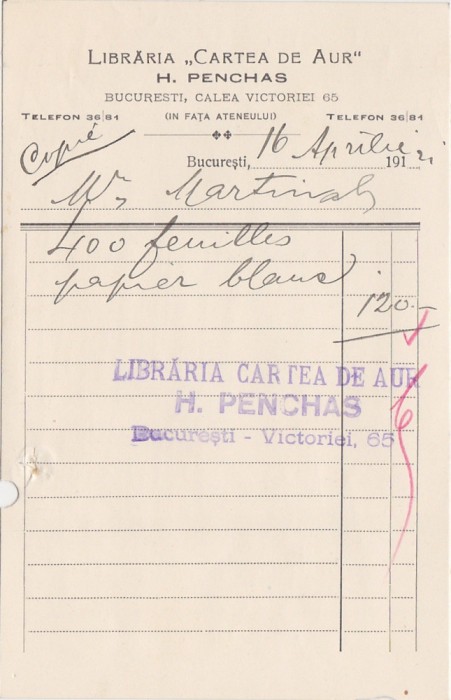 LIBRĂRIA „CARTEA DE AUR"
H. PENCHAS
BUCURESTI, CALEA VICTORIEI 65
TELEFON 36|81 (IN FAȚA ATENEULUI) TELEFON 36|81
Copie
București, 16 Aprilie 191
Mr
400 feuilles
papier blanc
120.-
LIBRĂRIA CARTEA DE AUR
H. PENCHAS
București - Victoriei, 65